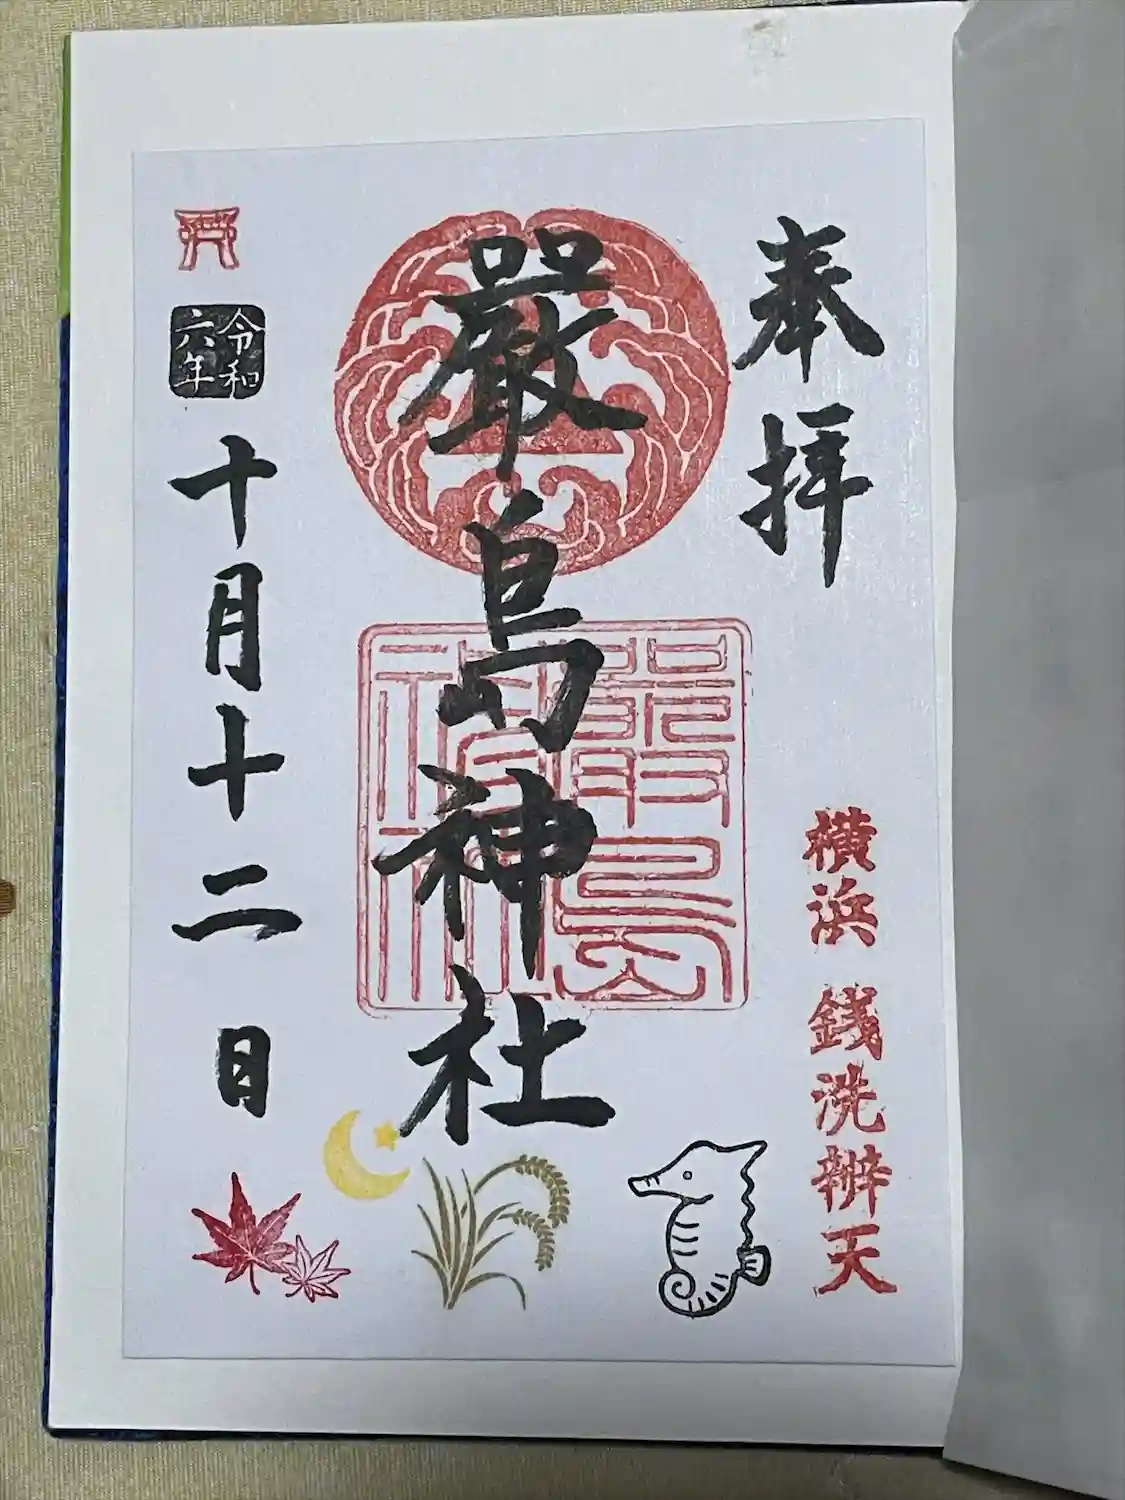 奉拝
横浜 銭洗辨天
嚴島神社
嚴島
神社
令和
六年
十月十二日